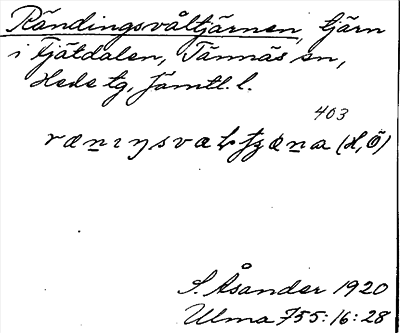 Rändingsvåltjärnen, tjärn
i Fjätdalen, Tännäs sn,
Hede tg, Jämtl. l.
403
(H, Ö)
S. Åsander 1920
Ulma 755:16:28